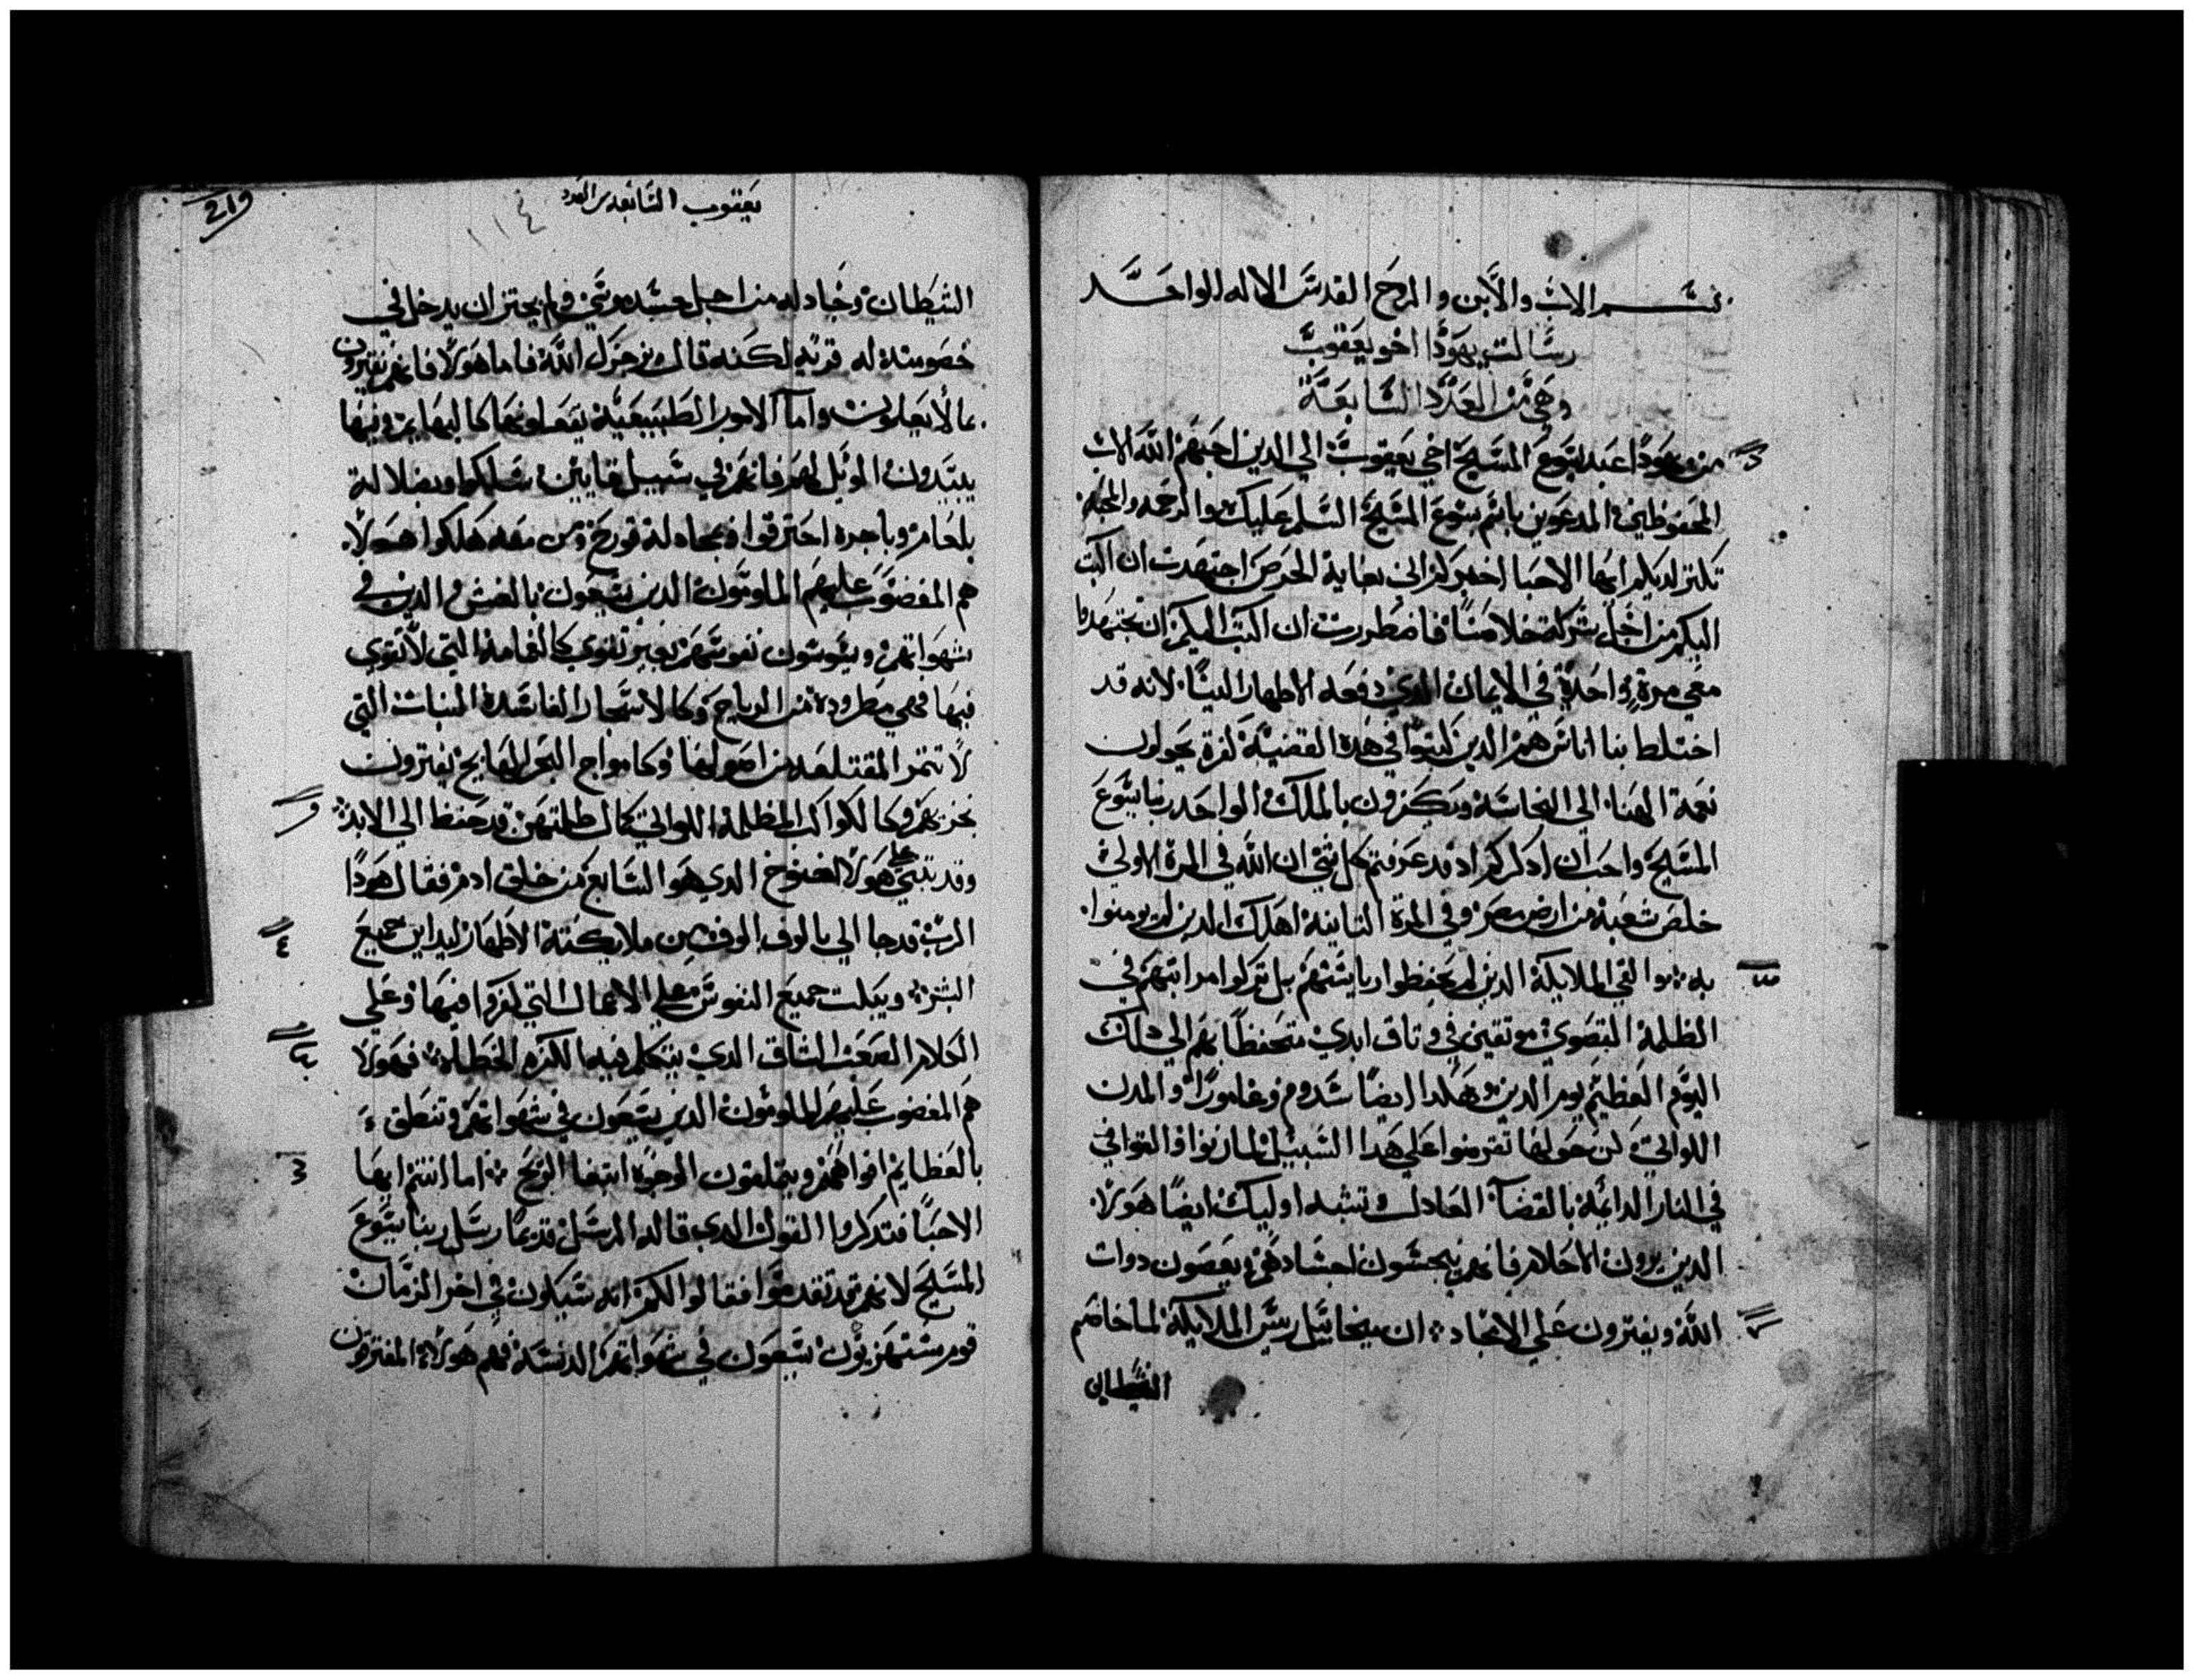 بسم الاب والابن والروح القدس الاله الواحد
رسالة يهودا اخو يعقوب
وهي من العدد السابعة
من يهودا عبد يسوع المسيح اخي يعقوب الي الدين احبهم الله الاب
المحفوظين المدعوين باسم يسوع المسيح السلم عليكم والرحمه والمحبه
تكتر لديكم ايها الاحبا اخبركم اني بغاية الحرص اجتهدت ان اكتب
اليكم من اجل شركة خلاصنا فاضطررت ان اكتب اليكم ان تجتهدوا
معي مرة واحدة في الايمان الدي دفعه الاطهار الينا لانه قد
اختلط بنا اناس هم الدين كتبوا في هده القضية كفرة يحولون
نعمة الهنا الي النجاسة ويكفرون بالملك الواحد ربنا يسوع
المسيح واحب ان ادكركم اد قد عرفتم كل شي ان الله في المرة الاولي
خلص شعبة من ارض مصر وفي المرة التانية اهلك الدين لم يومنوا
به والتي الملايكة الدين لم يحفظوا رياستهم بل تركوا مراتبهم في
الظلمة القصوي موتقين في وتاق ابدي متحفظا بهم الي دلك
اليوم العظيم يوم الدين وهكدا ايضا سدوم وغامورا والمدن
اللواتي كن حولها تقرمنوا علي هدا السبيل لما زنوا القوا في
في النار الدائمة بالقضا العادل وتشبه اوليك ايضا هولا
الدين يرون الاحلام فانهم ينجسون اجسادهم ويعصون دوات
الله ويفترون علي الامجاد ان ميخائيل ريس الملايكة لما خاصم
الشيطان
219
يعقوب السابعه من العدد
١١٤
الشيطان وجادله من اجل جسد موسي ولم يجتر ان يدخل في
خصومته له قريه لكنه قال يزجرك الله فاما هولا فانهم يفترون
بما لا يعلمون واما الامور الطبيعية يفعلونها كالبهايم وفيها
يبتدون الويل لهم فانهم في سبيل قايين سلكوا وبضلالة
بلعام وباجره احترقوا وبمجادلة قورح ومن معه هلكوا هولا
هم المغضوب عليهم الملومون الدين يسعون بالغش والدين في
شهواتهم ويسوسون نفوسهم بغير تقوي كالغمامة التي لا تقوي
فيها فهي مطرودة من الرياح وكالاشجار الفاسدة النبات التي
لا تتمر المقتلعه من اصولها وكامواج البحر الهايج يفترون
بخزيهم وكالكواكب المظلمة اللواتي كمال ظلمتهن قد حفظ الي الابد
وقد تنبي علي هولا اخنوخ الدي هو السابع من خلق ادم فقال هودا
الرب قد جا الي بالوف الوف من ملايكته الاطهار ليداين جميع
البشر ويبكت جميع النفوس معلي الاعمال التي كفروا فيها وعلي
الكلام الصعب الشاق الدي يتكلم فيه الكفره الخطاه فهولا
هم المغضوب عليهم الملومون الدين يسعون في شهواتهم وتنطق
بالعظايم افواههم ويتملقون الوجوه ابتغا الربح اما انتم ايها
الاحبا فتدكروا القول الدي قاله الرسل قديما رسل ربنا يسوع
المسيح لانهم قد تقدموا فقالوا لكم انه سيكون في اخر الزمان
قوم مستهزيون يسعون في شهواتهم الدنسة فهم هولا المفترون